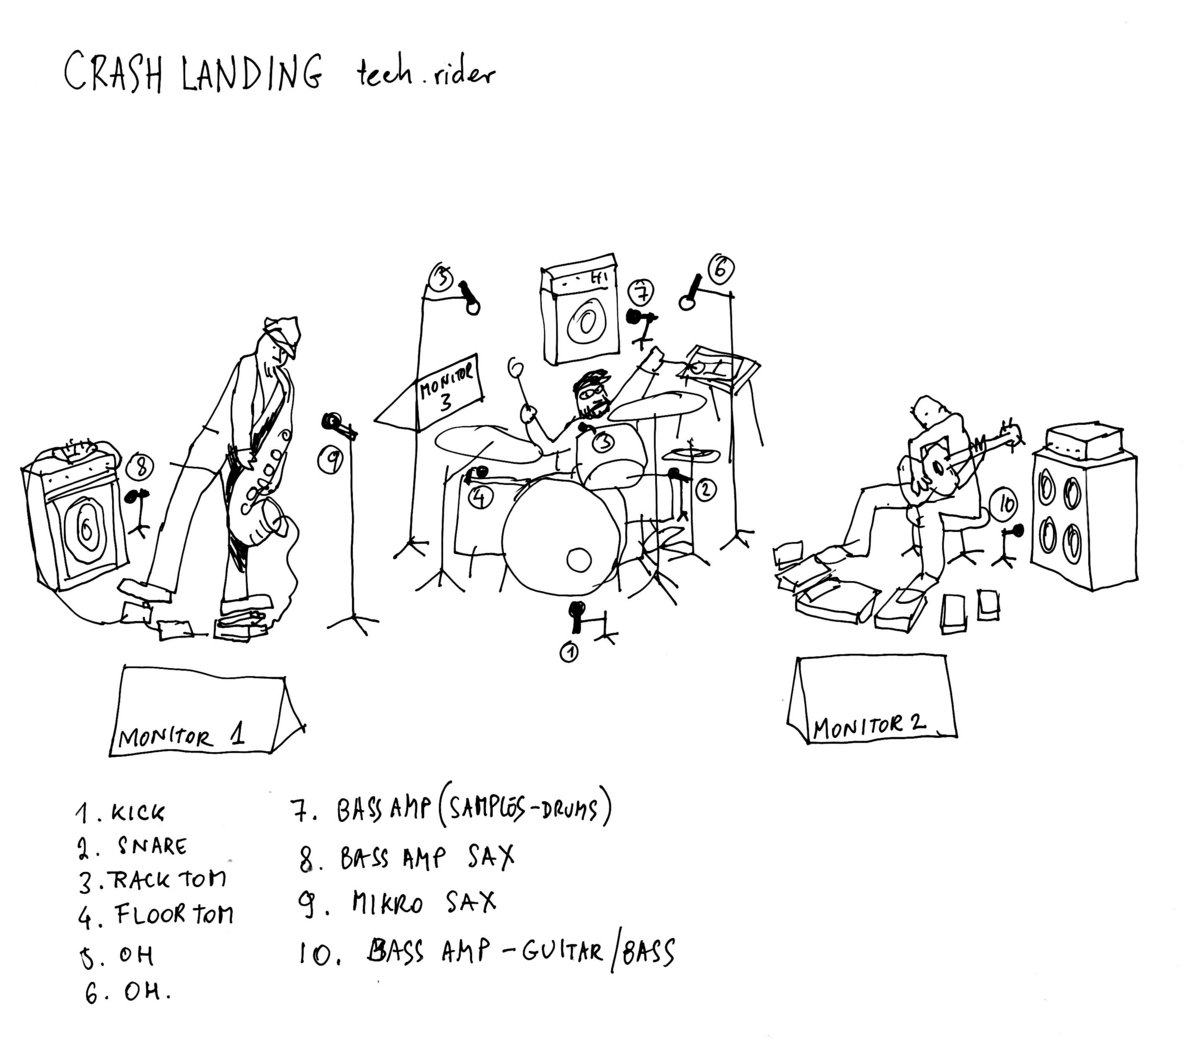 CRASH LANDING tech.rider
5
6
7
MONITOR
3
3
8
9
4
2
10
1
MONITOR 1
MONITOR 2
1. KICK
2. SNARE
3. RACK TOM
4. FLOOR TOM
5. OH
6. OH.
7. BASS AMP (SAMPLES-DRUMS)
8. BASS AMP SAX
9. MIKRO SAX
10. BASS AMP - GUITAR/BASS